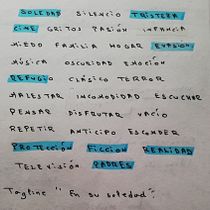 SOLEDAD SILENCIO TRISTEZA
CINE GRITOS PASIÓN INFANCIA
MIEDO FAMILIA HOGAR EVASIÓN
MÚSICA OSCURIDAD EMOCIÓN
REFUGIO CLÁSICO TERROR
MALESTAR INCOMODIDAD ESCUCHAR
PENSAR DISFRUTAR VACÍO
REPETIR ANTICIPO ESCONDER
PROTECCIÓN FICCIÓN REALIDAD
TELEVISIÓN PADRES
Tagline "En su soledad".